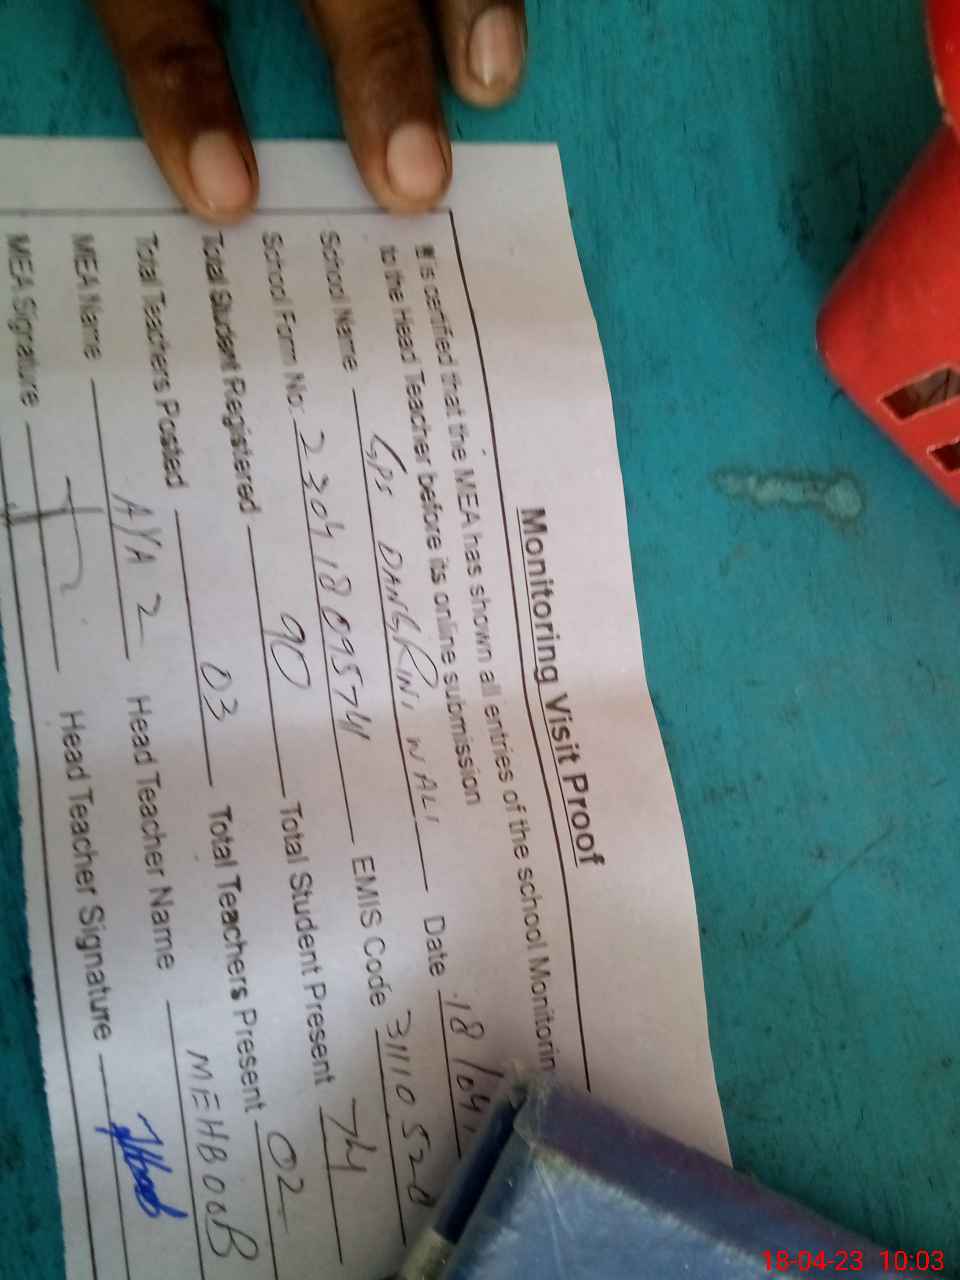 Monitoring Visit Proof
It is certified that the MEA has shown all entries of the school Monitorin
to the Head Teacher before its online submission
School Name GPS DANGRIN WALI Date 18/04
School Form No: 23041809574 EMIS Code 3111052
Total Student Registered 90 Total Student Present 74
Total Teachers Posted 03 Total Teachers Present 02
MEA Name AYAZ Head Teacher Name MEHBOOB
MEA Signature Head Teacher Signature
18-04-23 10:03